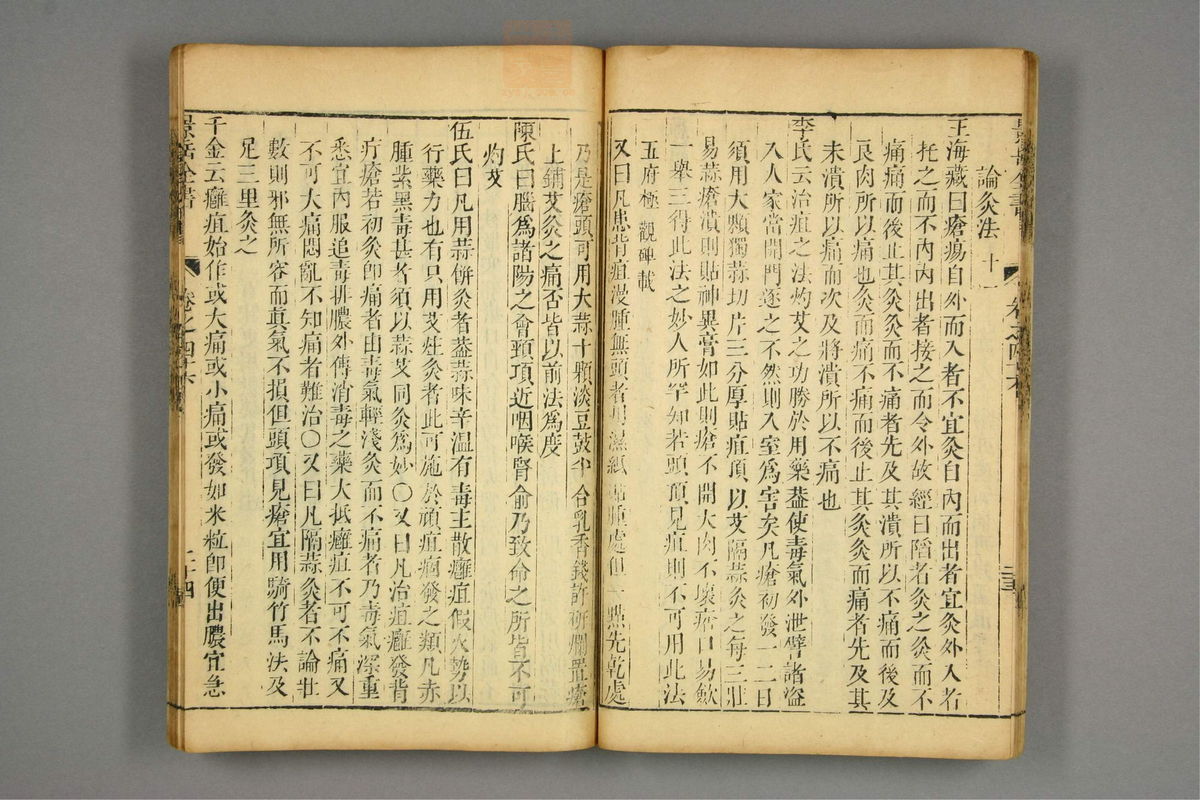 論灸法 十一
王海藏曰瘡瘍自外而入者不宜灸自內而出者宜灸外入者
托之而不內內出者接之而令外故經曰陷者灸之灸而不
痛痛而後止其灸灸而不痛者先及其潰所以不痛而後及
良肉所以痛也灸而痛不痛而後止其灸灸而痛者先及其
未潰所以痛而次及將潰所以不痛也
李氏云治疽之法灼艾之功勝於用藥蓋使毒氣外泄譬諸盜
入人家當開門逐之不然則入室為害矣凡瘡初發一二日
須用大顆獨蒜切片三分厚貼疽頂以艾隔蒜灸之每三壯
易蒜瘡潰則貼神異膏如此則瘡不開大肉不壞瘡口易斂
一舉三得此法之妙人所罕知若頭頂見疽則不可用此法
五府極 觀碑載
又曰凡患背疽漫腫無頭者用濕紙貼腫處但一點先乾處
乃是瘡頭可用大蒜十顆淡豆豉半合乳香錢許研爛置瘡
上鋪艾灸之痛否皆以前法為度
陳氏曰腦為諸陽之會頸項近咽喉腎俞乃致命之所皆不可
灼艾
伍氏曰凡用蒜餅灸者蓋蒜味辛溫有毒主散癰疽假火勢以
行藥力也有只用艾炷灸者此可施於頑疽痼發之類凡赤
腫紫黑毒甚者須以蒜艾同灸為妙〇又曰凡治疽癰發背
疔瘡若初灸即痛者由毒氣輕淺灸而不痛者乃毒氣深重
悉宜內服追毒排膿外傅消毒之藥大抵癰疽不可不痛又
不可大痛悶亂不知痛者難治〇又曰凡隔蒜灸者不論壯
數則邪無所容而真氣不損但頭項見瘡宜用騎竹馬法及
足三里灸之
千金云癰疽始作或大痛或小痛或發如米粒即便出膿宜急
景岳全書
卷之四十六
二十四